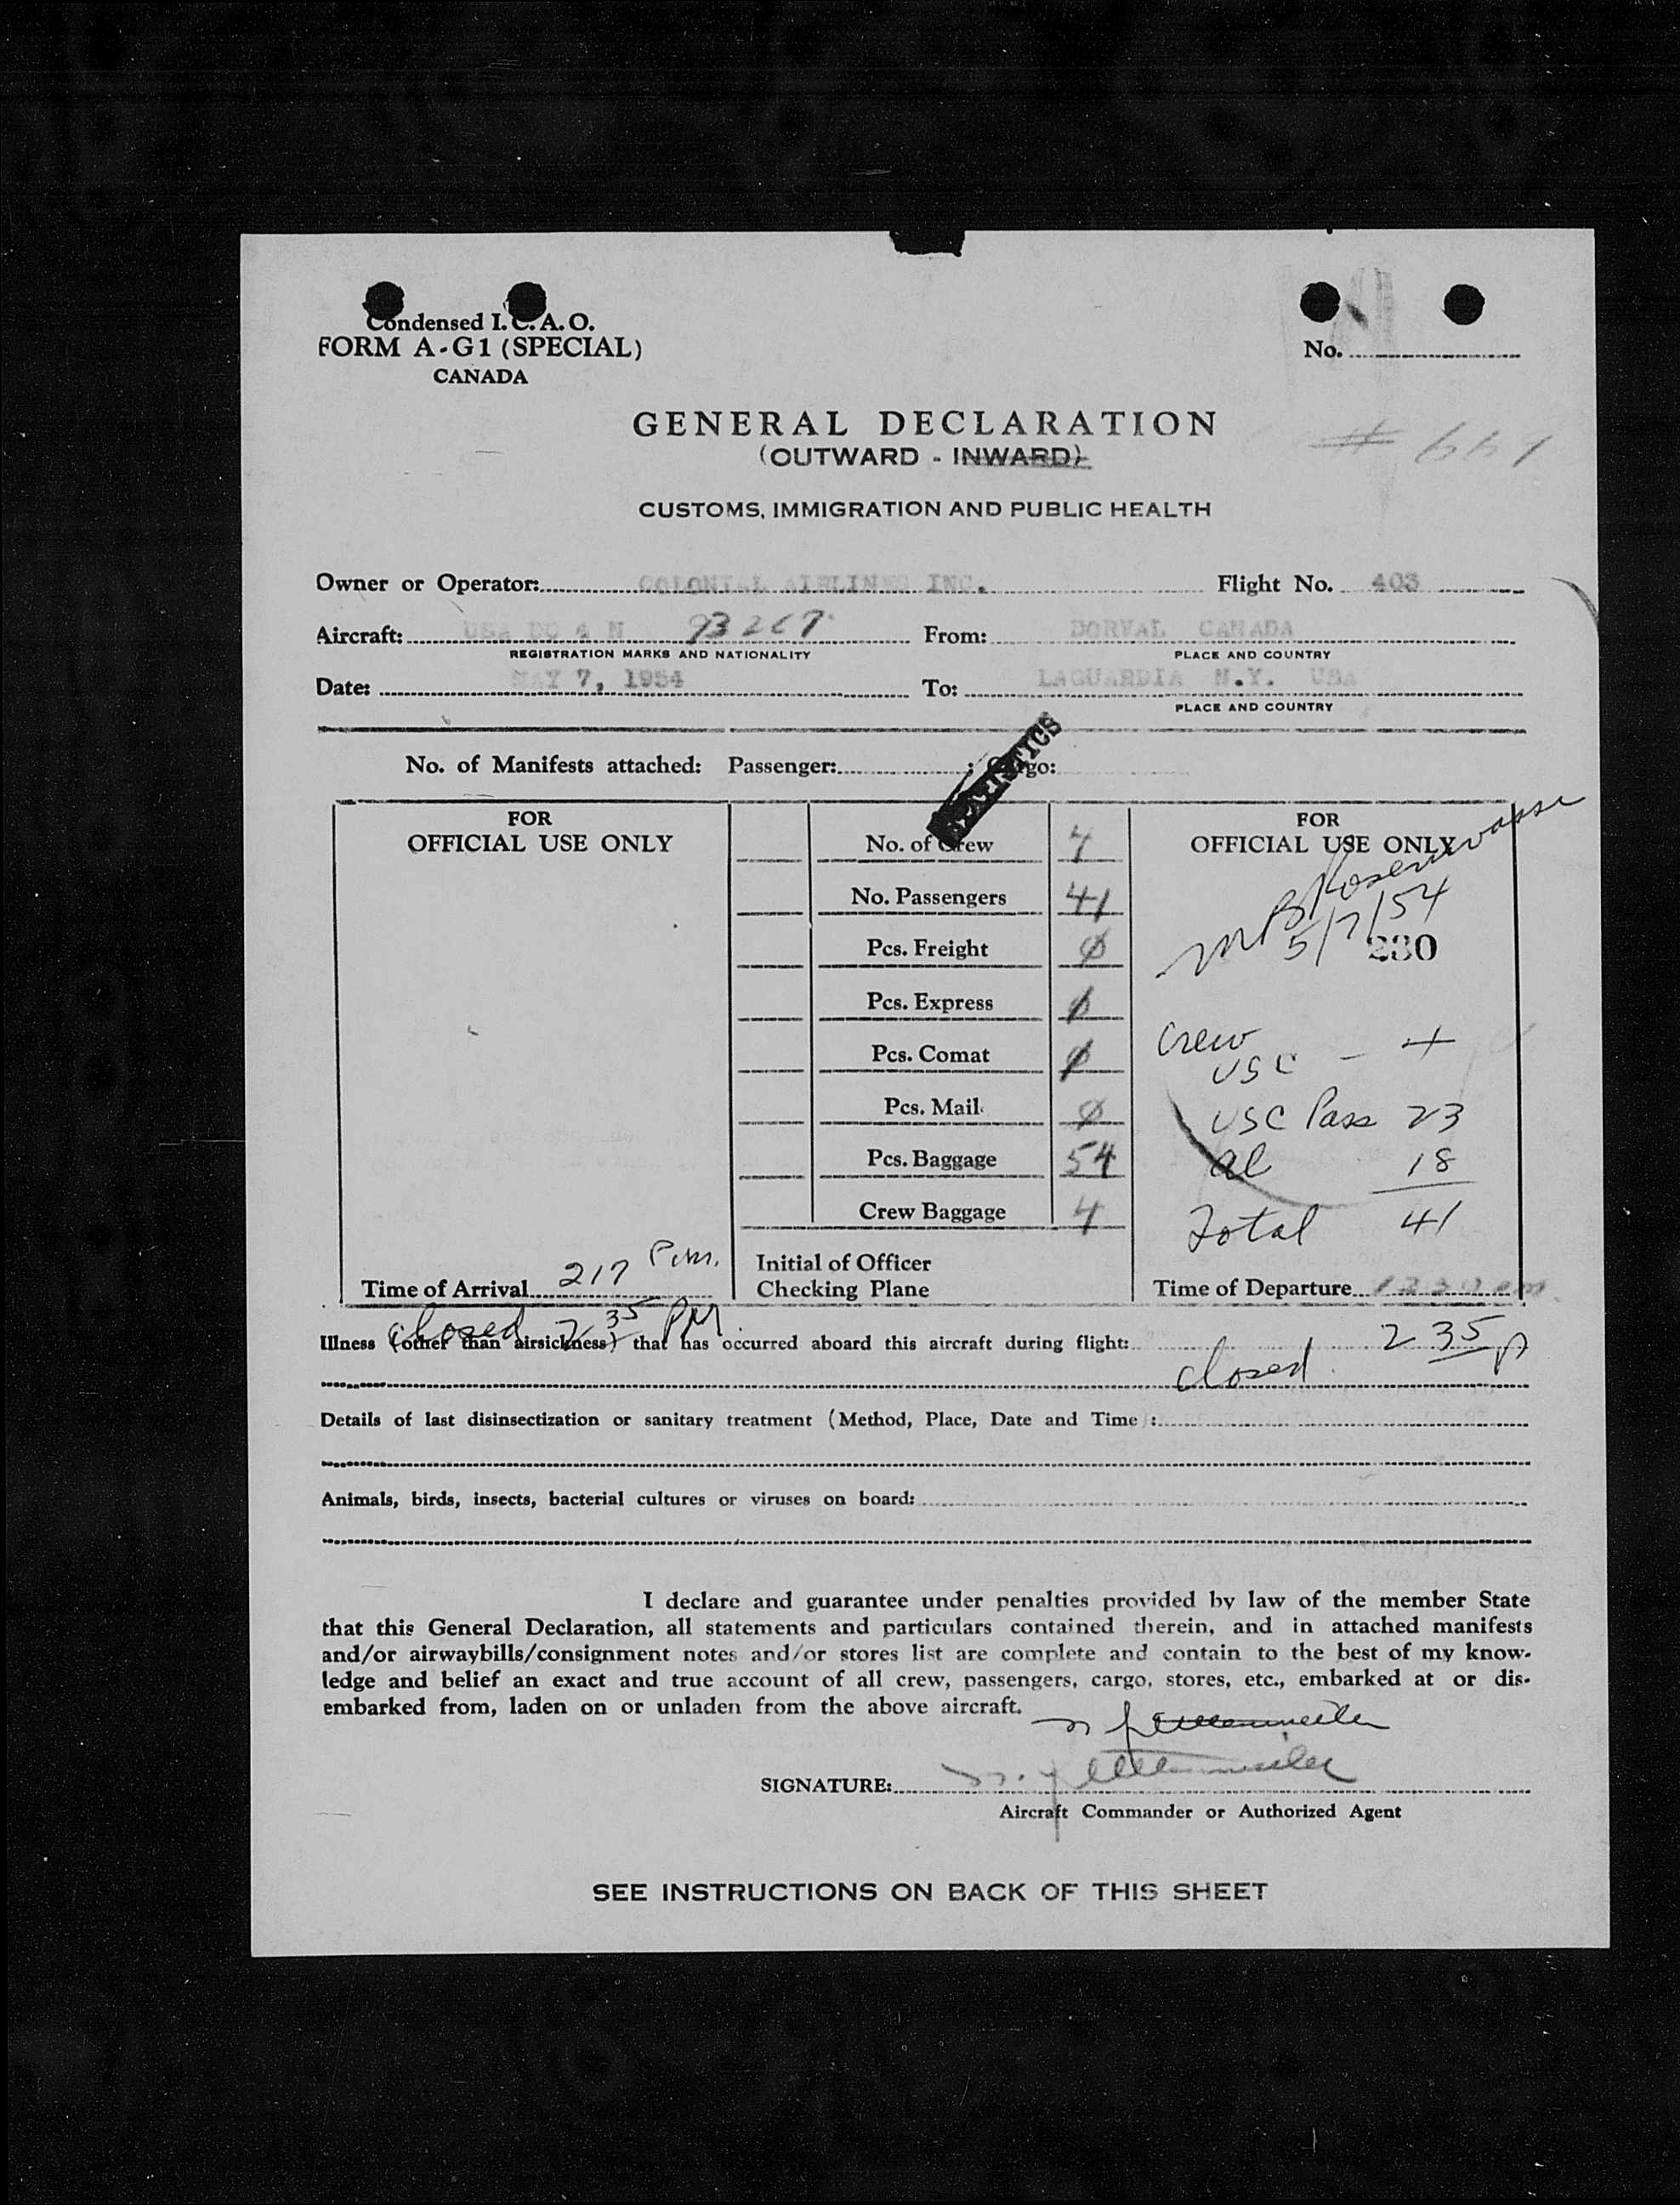 Condensed I.C.A.O.
FORM A-G1 (SPECIAL)
CANADA
No.
GENERAL DECLARATION
(OUTWARD - INWARD)
# 661
CUSTOMS, IMMIGRATION AND PUBLIC HEALTH
Owner or Operator: COLONIAL AIRLINES INC. Flight No. 403
Aircraft: USA DC 4 N 93267 From: DORVAL CANADA
REGISTRATION MARKS AND NATIONALITY PLACE AND COUNTRY
Date: MAY 7, 1954 To: LAGUARDIA N.Y. USA
PLACE AND COUNTRY
STATISTICS
No. of Manifests attached: Passenger: ; Cargo:
FOR
OFFICIAL USE ONLY
No. of Crew 4
No. Passengers 41
Pcs. Freight Ø
Pcs. Express Ø
Pcs. Comat Ø
Pcs. Mail Ø
Pcs. Baggage 54
Crew Baggage 4
Initial of Officer
Checking Plane
FOR
OFFICIAL USE ONLY
5/7/54
230
Crew
USC - 4
USC Pass 23
al 18
Total 41
Time of Arrival 217 P.m.
closed 2 35 PM
Time of Departure 1230 pm
closed 2 35 p
Illness (other than airsickness) that has occurred aboard this aircraft during flight:
Details of last disinsectization or sanitary treatment (Method, Place, Date and Time):
Animals, birds, insects, bacterial cultures or viruses on board:
I declare and guarantee under penalties provided by law of the member State
that this General Declaration, all statements and particulars contained therein, and in attached manifests
and/or airwaybills/consignment notes and/or stores list are complete and contain to the best of my know-
ledge and belief an exact and true account of all crew, passengers, cargo, stores, etc., embarked at or dis-
embarked from, laden on or unladen from the above aircraft.
SIGNATURE:
Aircraft Commander or Authorized Agent
SEE INSTRUCTIONS ON BACK OF THIS SHEET